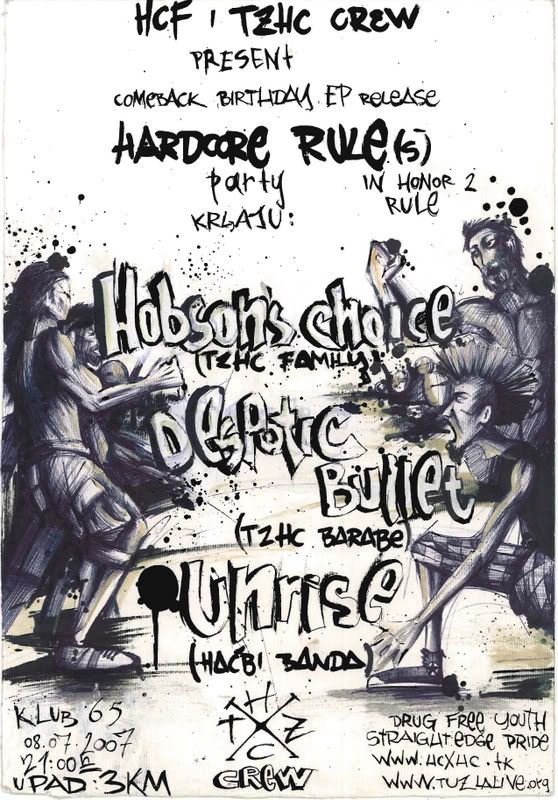 HCF I TZHC CREW
PRESENT
COMEBACK BIRTHDAY EP RELEASE
HARDCORE RULE(S)
party
IN HONOR 2
RULE
KRLAJU:
Hobson's choice
(TZHC FAMILY)
Despotic
Bullet
(TZHC BARABE)
Unrise
(HAČBI BANDA)
KLUB 65
08.07.2007
21:00h
UPAD: 3KM
H
T Z
C
CREW
DRUG FREE YOUTH
STRAIGHTEDGE PRIDE
WWW.HCXHC.TK
WWW.TUZLALIVE.org